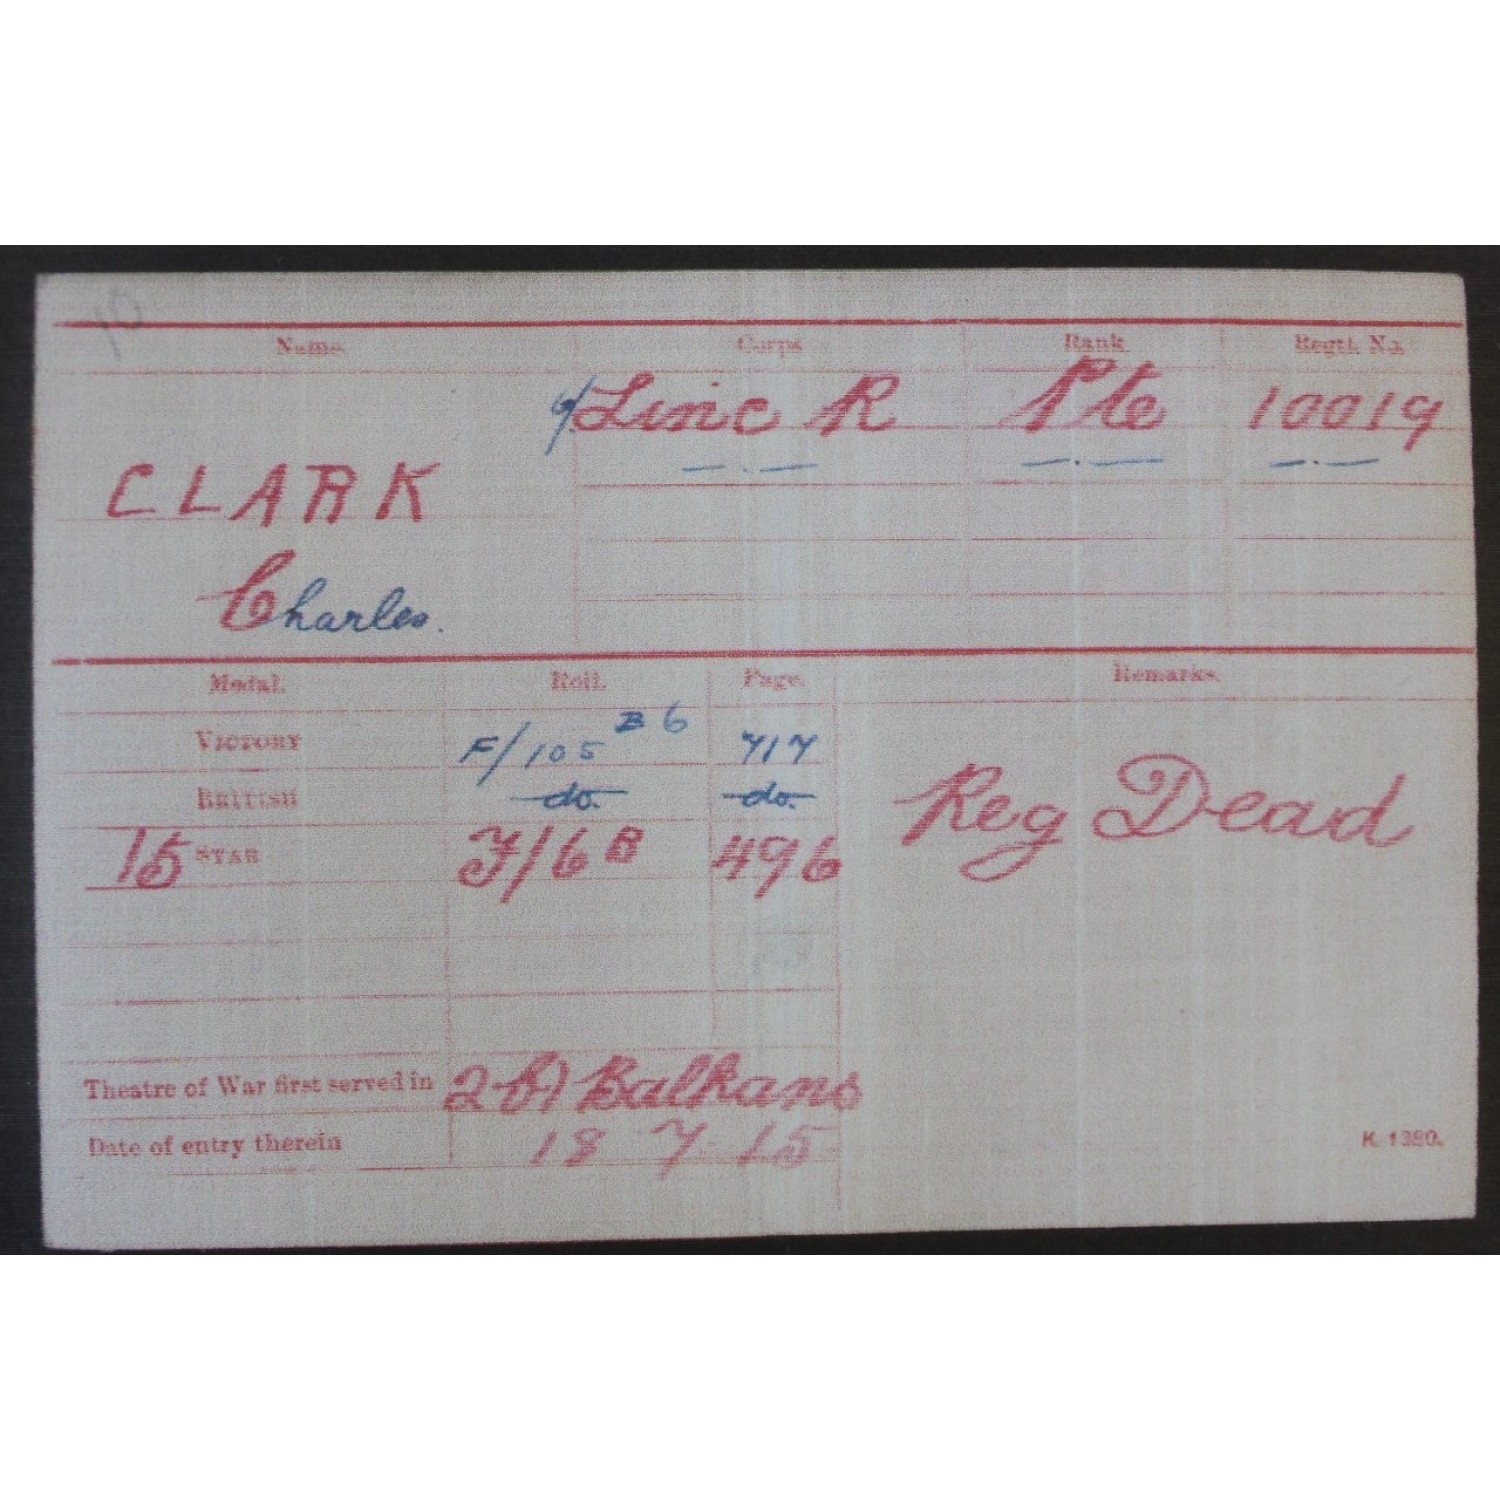 Name. Corps Rank Regtl. No.
Linc R Pte 10019
CLARK
Charles.
Medal. Roll. Page. Remarks.
VICTORY F/105 B6 717
BRITISH do. do.
15 STAR F/6B 496
Reg Dead
Theatre of War first served in 2 b) Balkans
Date of entry therein 18 7 15
K. 1380.